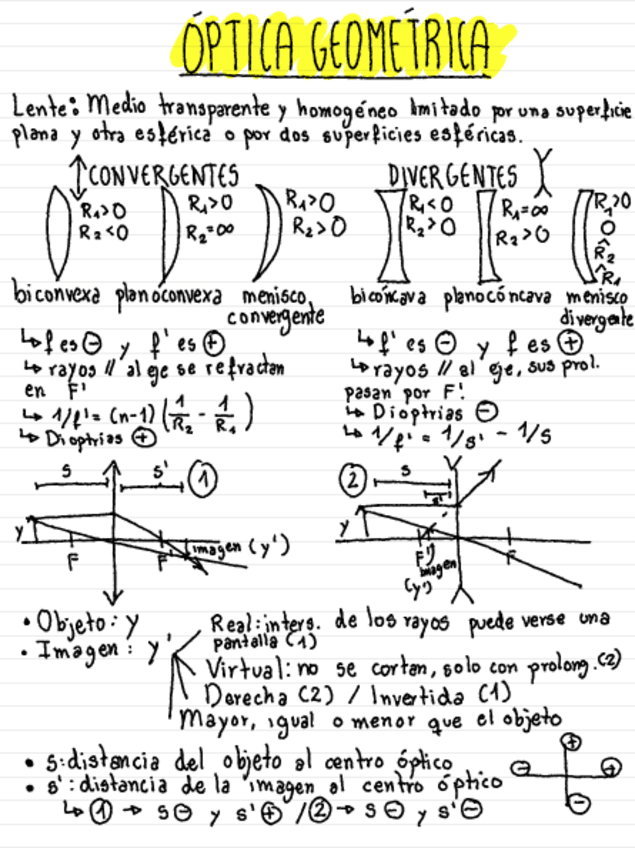 ÓPTICA GEOMÉTRICA
Lente: Medio transparente y homogéneo limitado por una superficie
plana y otra esférica o por dos superficies esféricas.
CONVERGENTES
R₁>0
R₂<0
R₁>0
R₂=∞
R₁>0
R₂>0
biconvexa planoconvexa menisco
convergente
↳ f es ⊖ y f' es ⊕
↳ rayos // al eje se refractan
en F'
↳ 1/f' = (n-1) (1/R₂ - 1/R₁)
↳ Dioptrias ⊕
DIVERGENTES
R₁<0
R₂>0
R₁=∞
R₂>0
R₁>0
0
R₂
R₁
bicóncava planocóncava menisco
divergente
↳ f' es ⊖ y f es ⊕
↳ rayos // al eje, sus prol.
pasan por F'
↳ Dioptrias ⊖
↳ 1/f' = 1/s' - 1/s
s s' ①
y F F' imagen (y')
② s
s'
y F' F
imagen
(y')
• Objeto: y
• Imagen: y'
Real: inters. de los rayos puede verse una
pantalla (1)
Virtual: no se cortan, solo con prolong. (2)
Derecha (2) / Invertida (1)
Mayor, igual o menor que el objeto
• s: distancia del objeto al centro óptico
• s': distancia de la imagen al centro óptico
↳ ① → s ⊖ y s' ⊕ / ② → s ⊖ y s' ⊖
⊕
⊖ ⊕
⊖